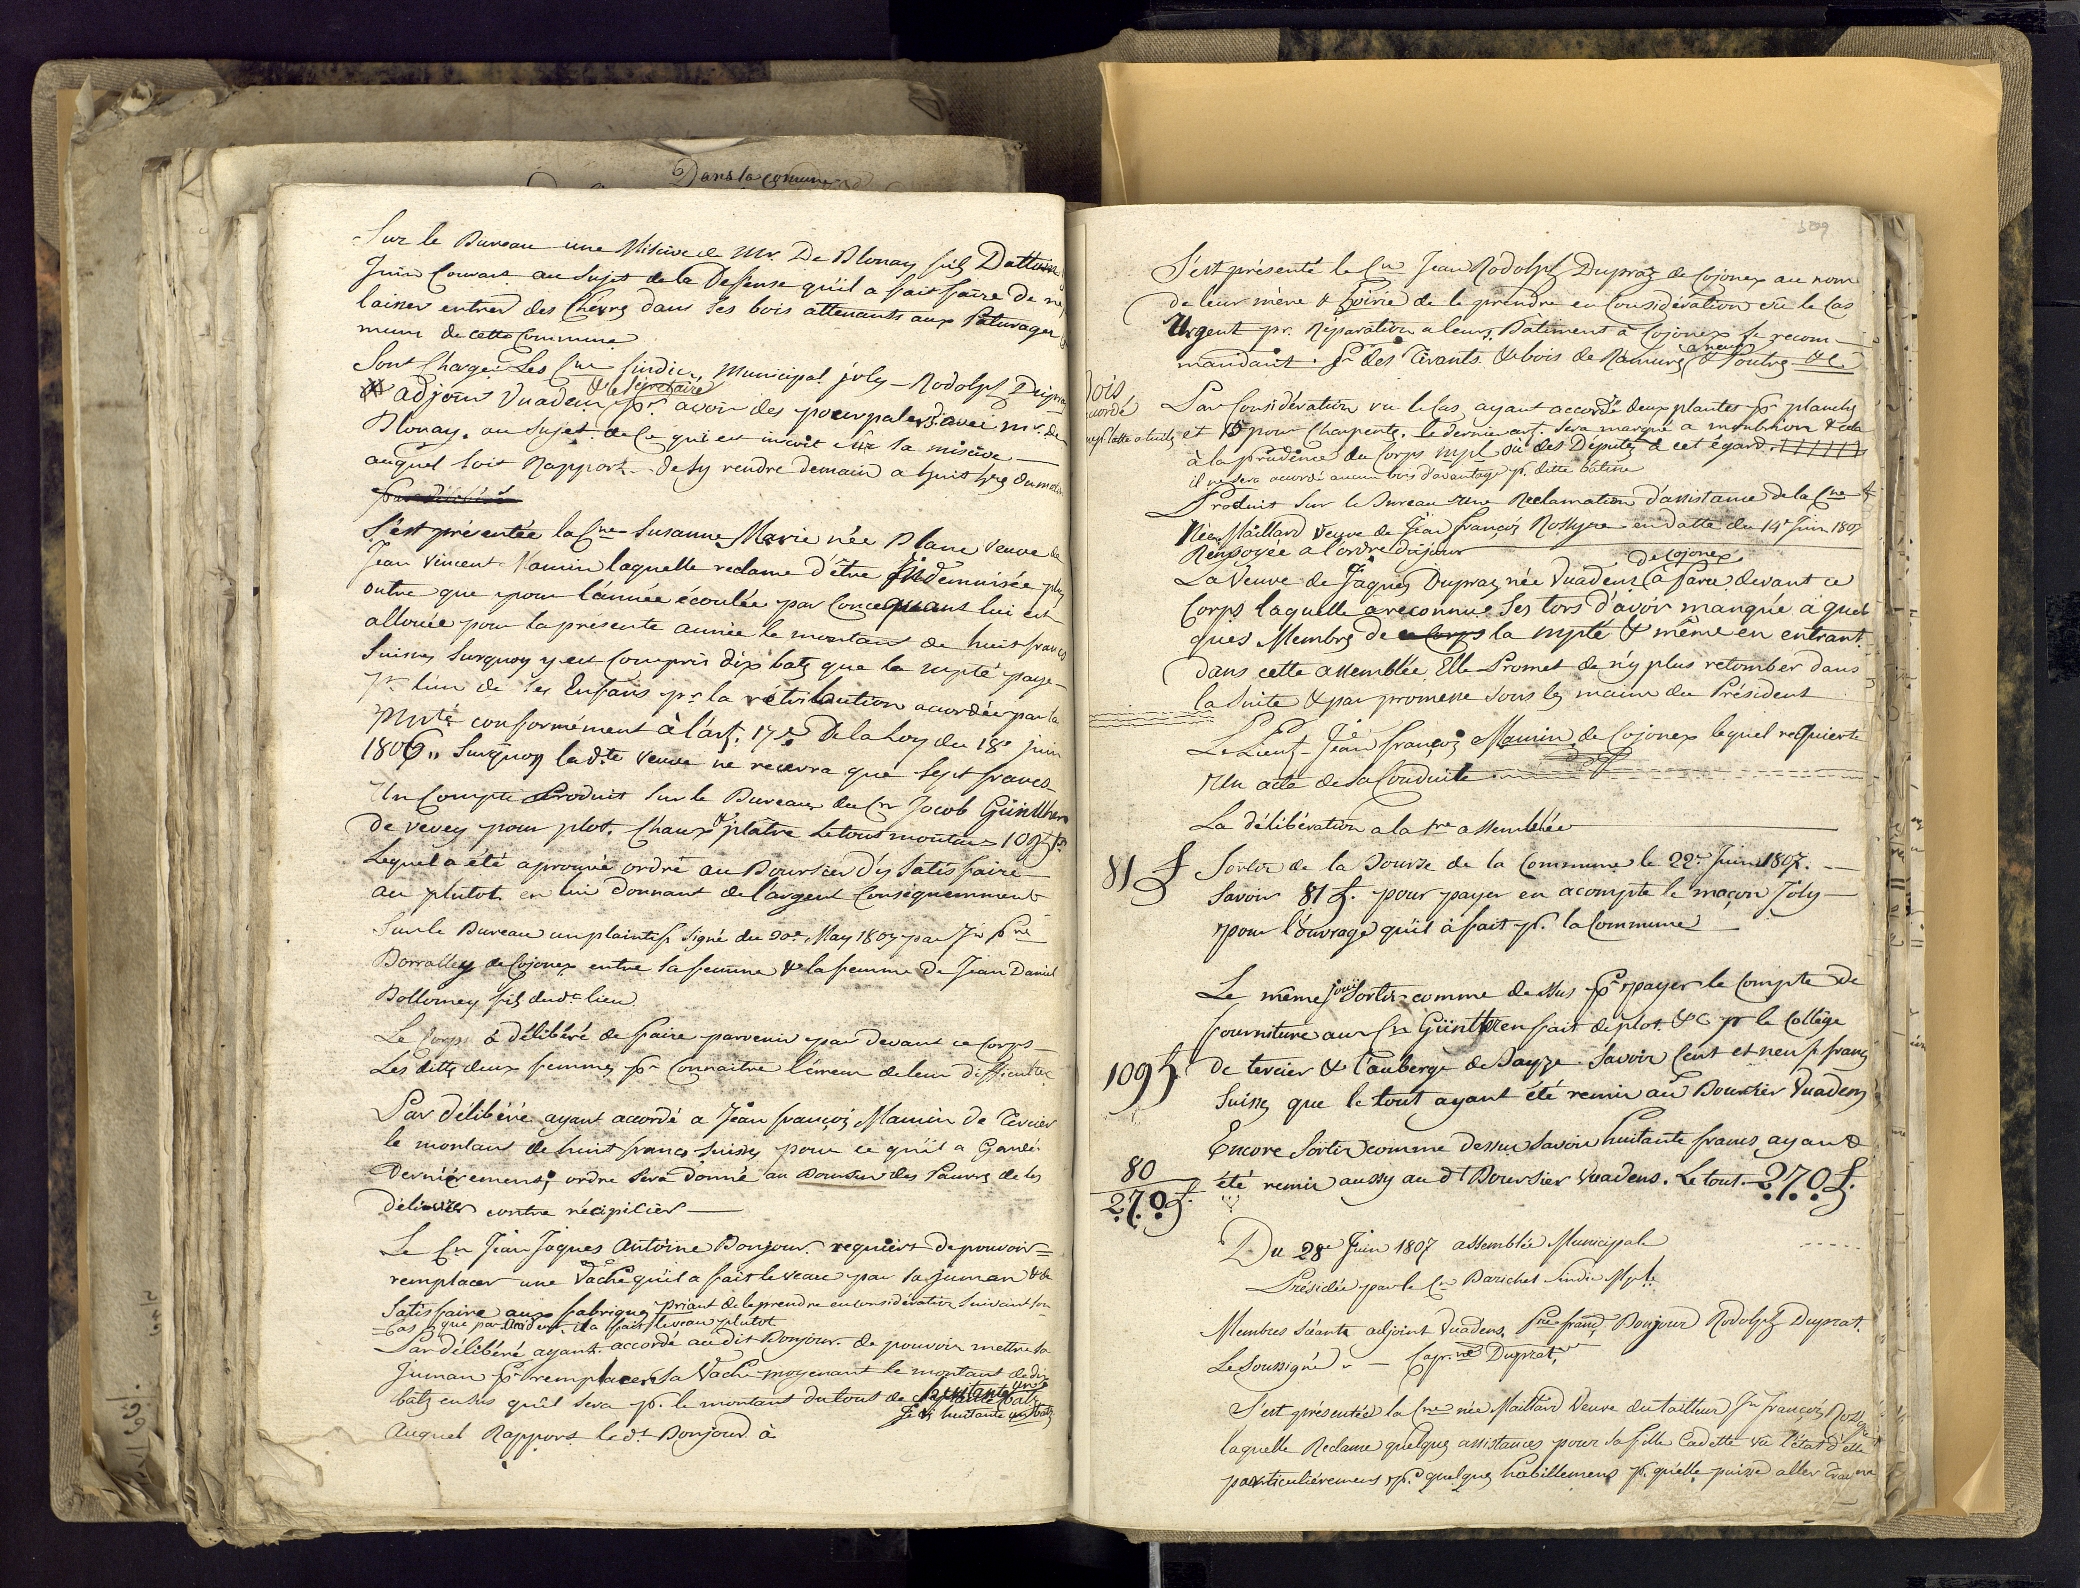 Dans la comune
Sur le Bureau une Missive de Mr. De Blonay fils Dattée
Juin Courant au Sujet de la Deffense qu'il a fait faire de ne
laisser entrer des Chevres dans ses bois attenants aux Paturages
muns de cette Commune
Sont Chargés Les Cns Sindic, Municipal joly - Rodolph Dupraz
adjoint Vuadens & le Secretaire pr. avoir des pourpalers avec Mr. De
Blonay. au Sujet de Ce qui est inscrit sur sa missive
auquel soit Rapport. de s'y rendre demain a huit hrs du matin
S'est présentée la Cne Susanne Marie née Blanc Veuve de
Jean Vincent Mamin laquelle reclame d'être indemnisée plus
outre que pour l'année écoulée par Concequent lui est
allouée pour la présente année le montant de huit francs
Suisses Surquoy y est Compris dix batz que la mpté paye
pr. l'un de ses Enfans pr. la rétribution accordée par la
Mpté conformément à l'art. 17e De la Loy du 18e juin
1806,, Surquoy lad.te veuve ne recevra que sept francs
Un Compte Produit Sur le Bureau du Cn Jacob Günther
de vevey pour plot. Chaux & platre le tout montant 109 f
Lequel a été aprouvé ordre au Boursier d'y Satisfaire
au plutot en lui donnant de l'argent Conséquemment
Sur le Bureau un plaintif Signé du 20e May 1807 par Jn fre
Borralley de Cojonex entre sa femme & la femme De Jean Daniel
Bollomey fils dud.t lieu
Le Corps a délibéré de faire parvenir par devant ce Corps
Les dittes deux femmes pr. Connaitre l'erreur de leur difficultez
Par délibéré ayant accordé a Jean françois Mamin de Tercier
le montant de huit francs suisses pour ce qu'il a Gardé
Dernièrement, ordre Sera donné au Boursier des Pauvres de les
délivrer contre récipicier
Le Cn Jean Jaques Antoine Bonjour. requiert de pouvoir
remplacer une Vache qu'il a fait le veau par sa jument & de
Satisfaire aux fabriques priant de le prendre en considération suivant son
Cas que par accident il a fait le veau plutot
Par délibéré ayant accordé au dit Bonjour. de pouvoir mettre sa
Jument pr. remplacer sa Vache moyenant le montant de dix
batz en sus qu'il sera pr. le montant du tout de
huitante un batz
Auquel Rapport. le dt Bonjour à
S'est présenté le Cn Jean Rodolph Dupraz de Cojonex au nom
de leur mère & hoirie de le prendre en Considération vu le Cas
Urgent pr. Réparation a leurs Bâtiment à Cojonex se recom-
mandant. pr. des Tirants & bois de Ramures & Poutres &c
Bois
accordé
Par Considération vu le Cas, ayant accordé deux plantes pr. planches
et 15 pour Charpente. le dernier art. Sera marqué a
à la prudence du Corps mpl ou des Députés à cet égard.
il ne sera accordé aucun bois d'avantage pr. ditte bâtisse
Produit Sur le Bureau une Reclamation d'assistance de la Cne
Née Maillard Veuve de Jean françois Rossier en datte du 14e Juin 1807
Renvoyée a l'ordre du jour
La Veuve de Jaques Dupraz née Vuadens de Cojonex a paru devant ce
Corps laquelle a reconnue Ses tors d'avoir manqué à quel
ques Membres de ce Corps la mpté & même en entrant
dans cette assemblée, Elle Promet de n'y plus retomber dans
la Suite & par promesse sous les mains du Président
Le Lieut. Jean françois Mamin de Cojonex lequel requierte
Un acte de sa Conduite
La délibération a la 1re assemblée
81 f Sortir de la Bourse de la Commune le 22e Juin 1807.
Savoir 81 f. pour payer en acompte le maçon Joly
pour l'ouvrage qu'il à fait pr. la Commune
Le même jour Sortir comme dessus pr. payer le Compte de
fourniture aux Cn Günther en fait de plot. &c pr. le Collège
109 f de tercier & l'auberge de Bayze Savoir Cent et neuf francs
Suisses que le tout ayant été remis au Boursier Vuadens
Encore Sortir comme dessus Savoir huitante francs ayant
80 été remis aussy au dt Boursier Vuadens. Le tout. 270 f.
270 f.
Du 28e Juin 1807 assemblée Municipale
Présidée par le Cn Barichet Sindic Mpte
Membres Séants adjoint Vuadens. Bonjour Rodolph Duprat.
Le Soussigné. - Capne Duprat,
S'est présentée la Cne née Maillard Veuve du tailleur Jn françois Rossier
laquelle Reclame quelques assistances pour sa fille Cadette vu l'état d'elle
particulièrement pr. quelques habillemens pr. qu'elle puisse aller